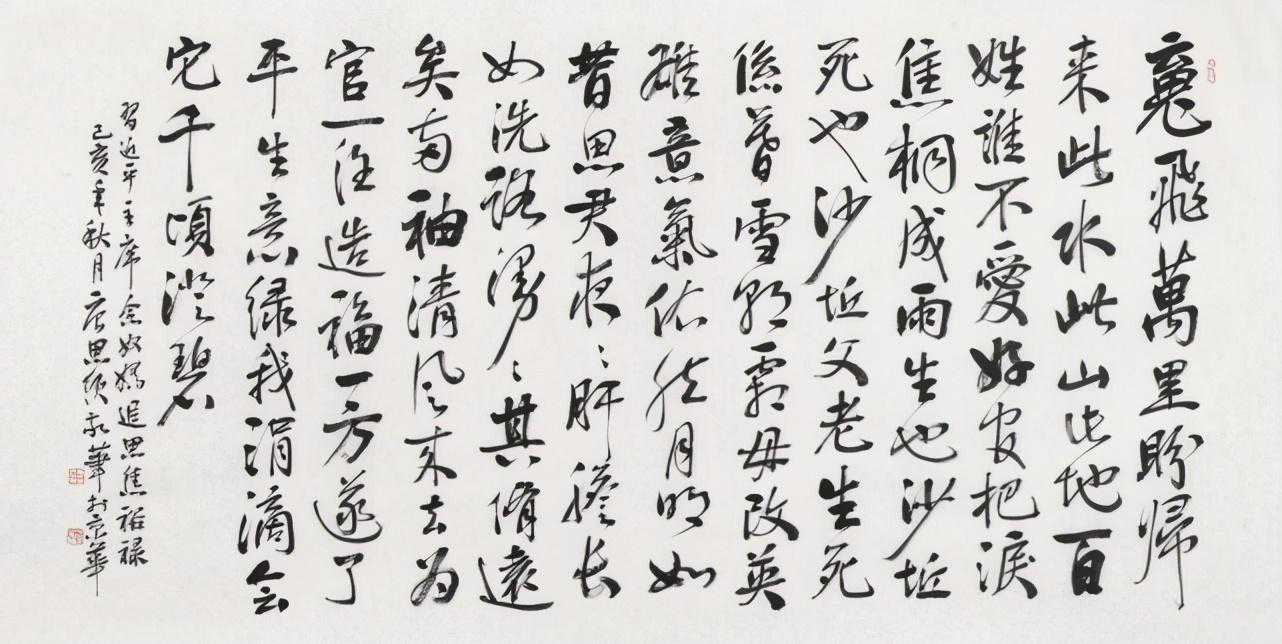 魂飛萬里盼歸
来此水此山此地百
姓誰不愛好官把淚
焦桐成雨生也沙坵
死也沙坵父老生死
係暮雪朝霜毋改英
雄意氣依然月明如
昔思君夜〻肝膽長
如洗路漫〻其脩遠
矣两袖清风来去为
官一任造福一方遂了
平生意绿我涓滴会
它千頃澄碧
習近平主席念奴嬌追思焦裕禄
己亥年秋月唐思 華於京華